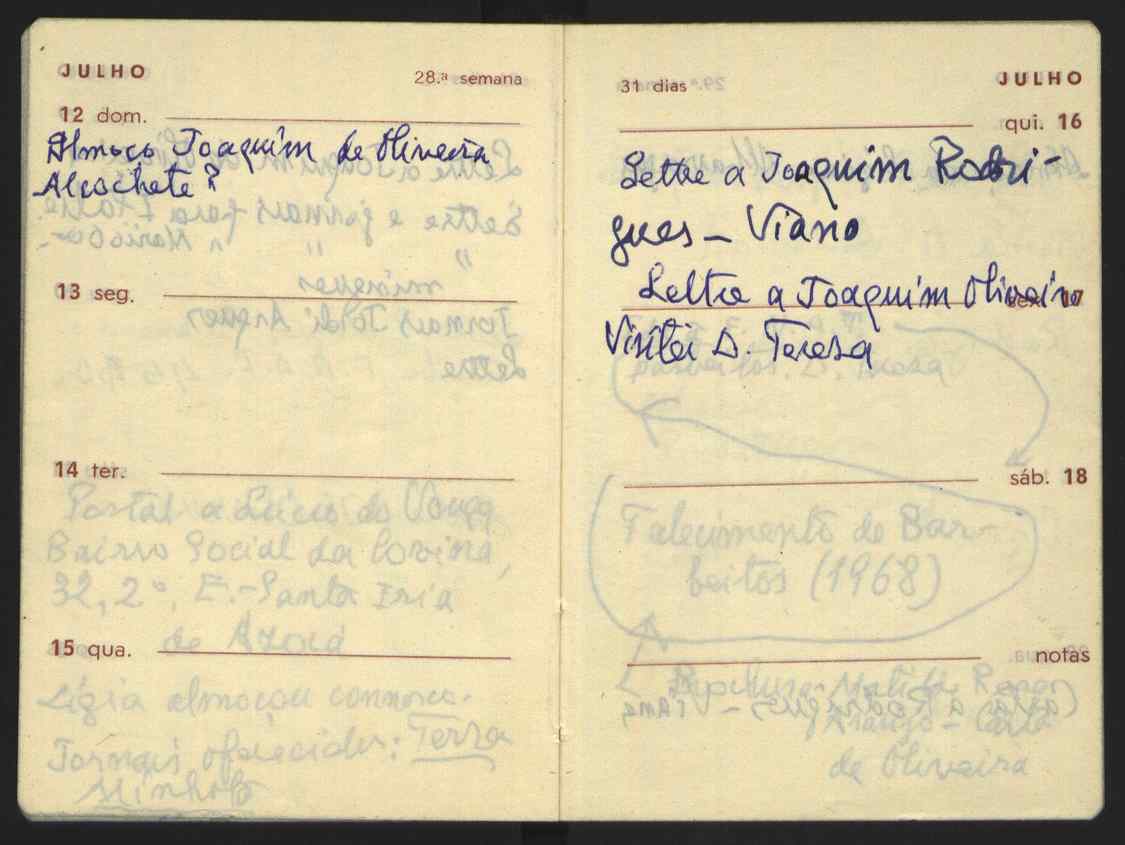 JULHO
28.ª semana
12 dom.
Almoço Joaquim de Oliveira
Alcochete?
13 seg.
14 ter.
Postal a Lúcio do Vouga
Bairro Social da Covina,
32, 2º, E.-Santa Iria
de Azoia
15 qua.
Lígia almoçou connosco.
Jornais oferecidos: Terra
Minhota
31 dias
JULHO
qui. 16
Lettre a Joaquim Rodri-
gues – Viana
Lettre a Joaquim Oliveira
sex. 17
Visitei D. Teresa
sáb. 18
Falecimento de Bar-
beitos (1968)
notas
Araújo – Carta
de Oliveira